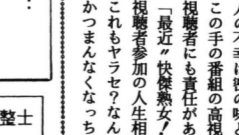 人の不幸は密の味
この手の番組の高視
視聴者にも責任があ
「最近〝快傑熟女!
視聴者参加の人生相
これもヤラセ?なん
かつまんなくなっち
整士